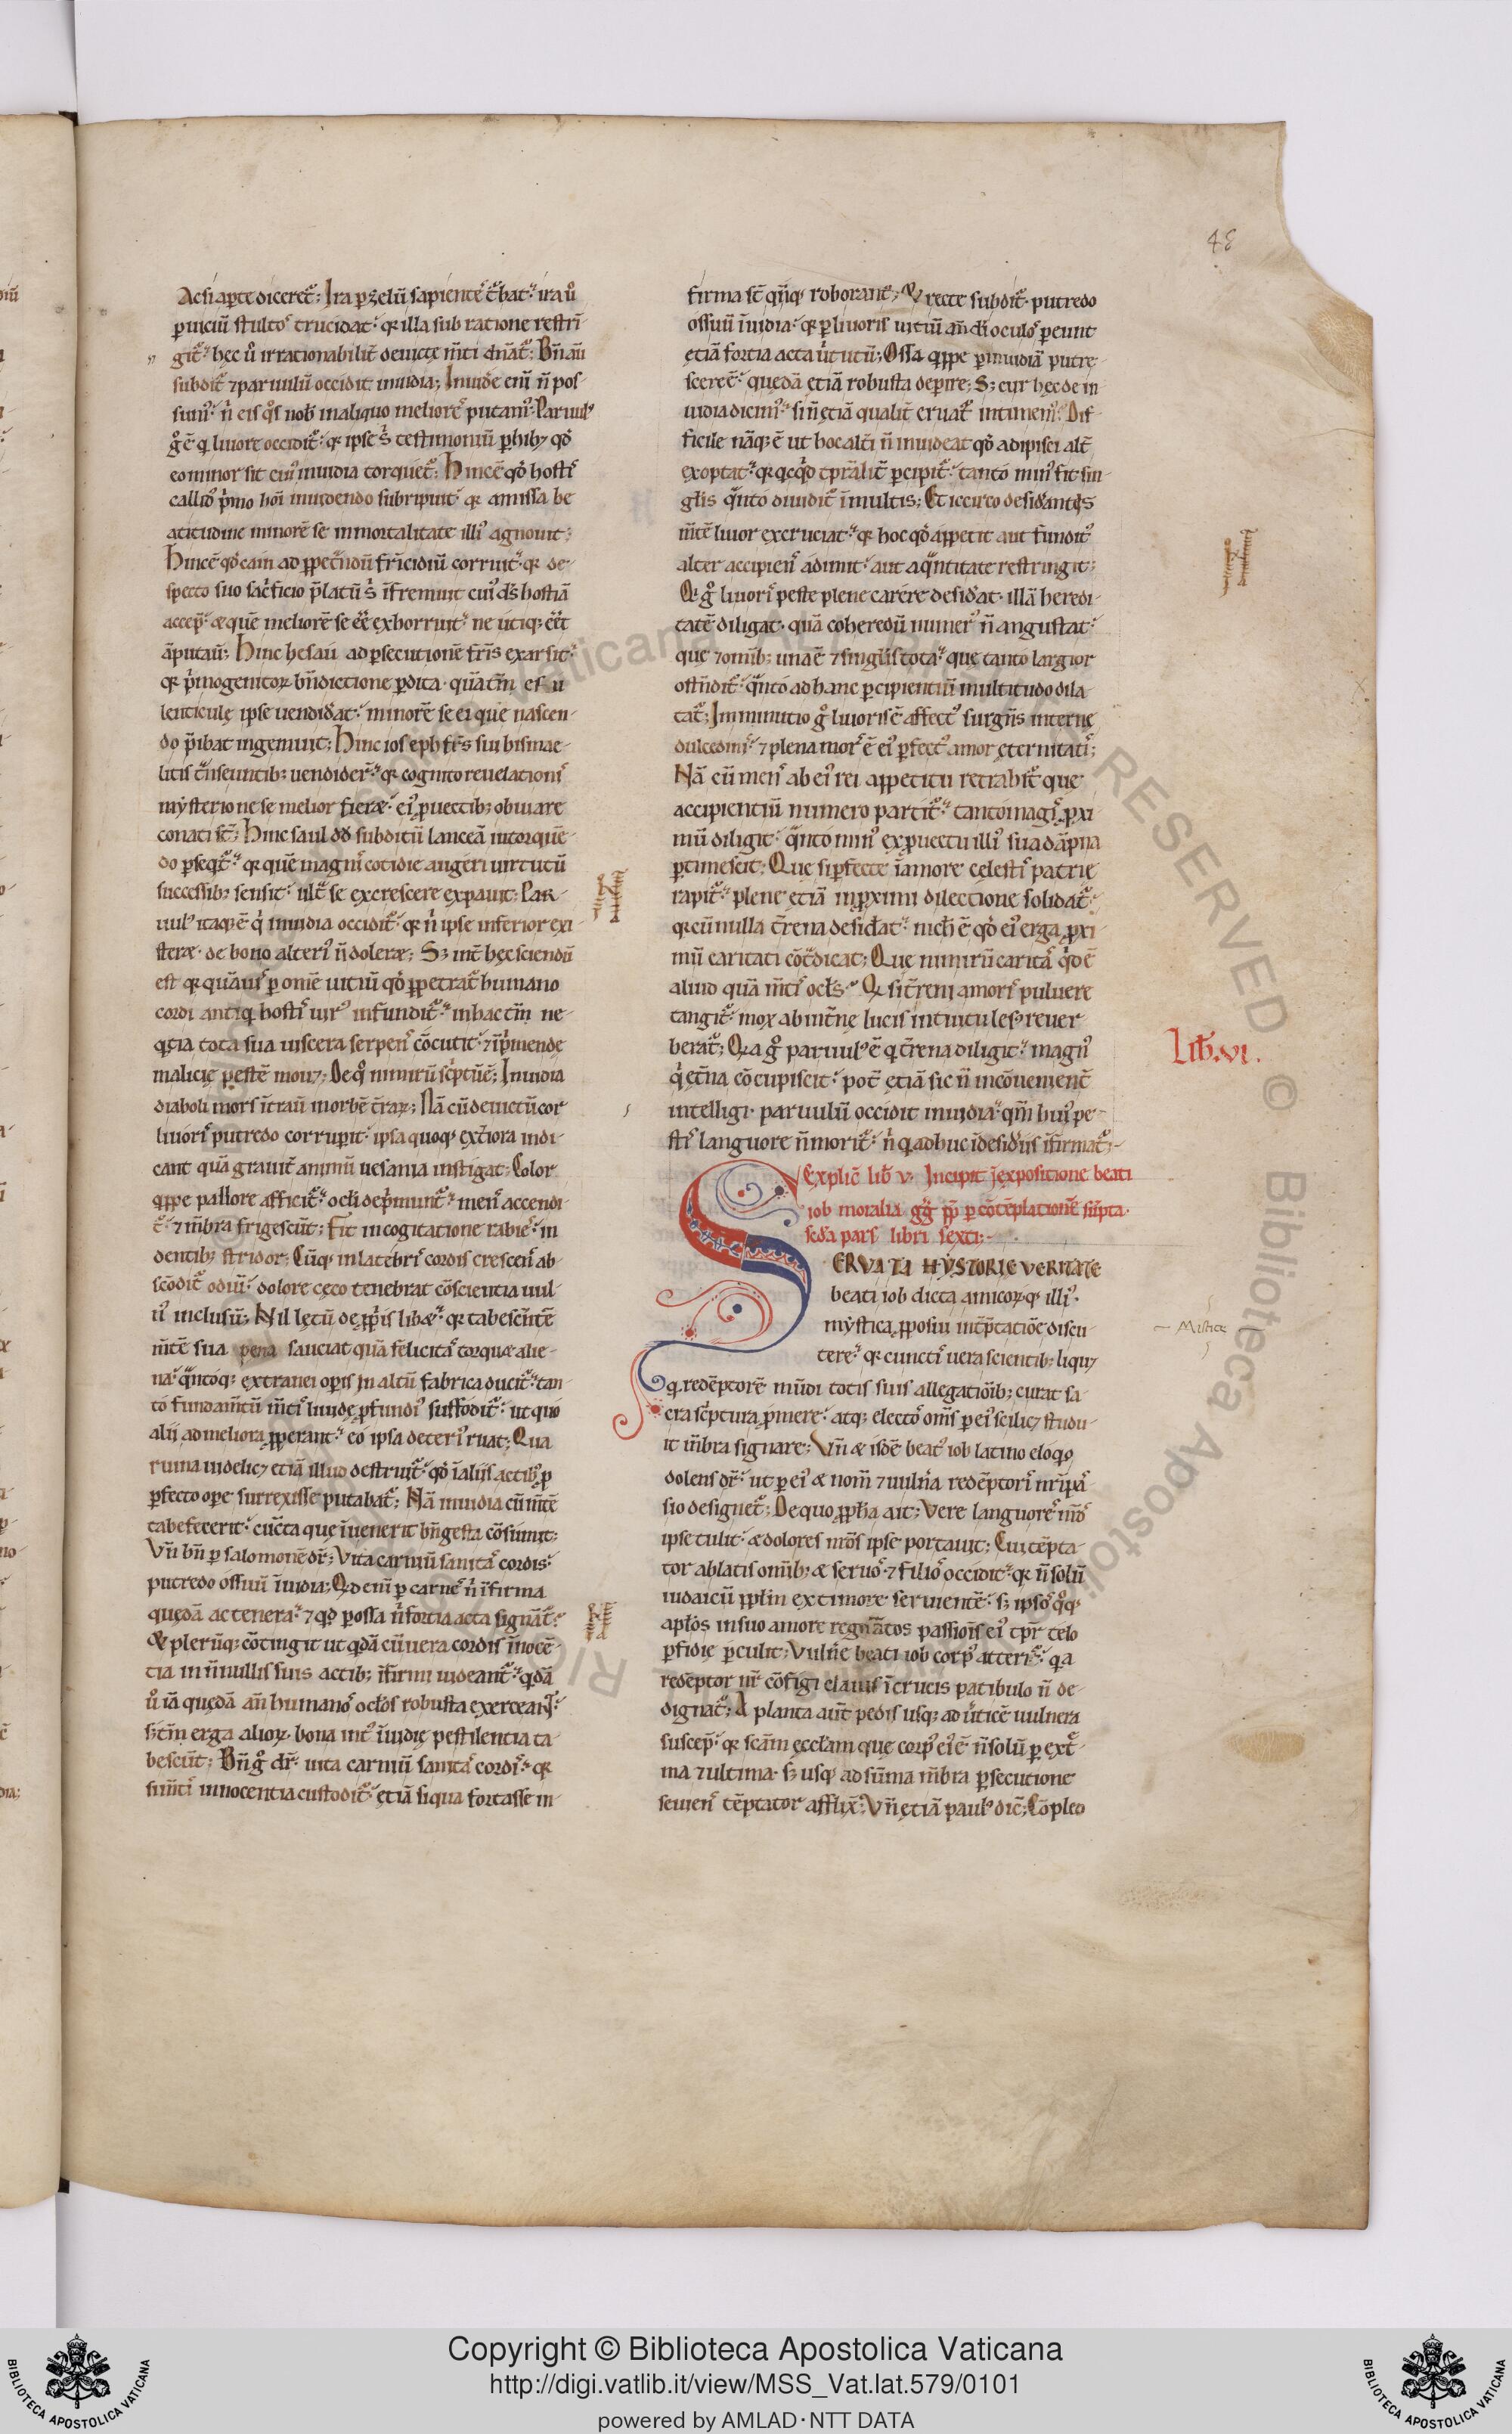 48
Ac si aꝑte diceret᷑; Ira ꝑ zelū sapientes t᷑bat᷑ ira ů
ꝑ uiciū stultos trucidat᷑ qꝛ illa sub ratione restrī
git᷑ hęc ů irrationabilit᷑ deuictę m̄ti dn̄at᷑; Bn̄ aū
subdit᷑ ⁊ paruulū occidit inuidia; Inuide᷑ enī n̄ pos
sumꝰ n̍ eis qͦs nob̄ in aliquo meliores putamꝰ; Paruulꝰ
g̊ ē qͥ liuore occidit᷑ qꝛ ipse s̍ testimoniū ꝑhibꝫ qd̍
eo minor sit cuiꝰ inuidia torquet᷑; Hinc ē qd̍ hostis
callidꝰ p̍mo hoī inuidendo subripuit qꝛ amissa be
atitudine minorē se inmortalitate illiꝰ agnouit;
Hinc ē qd̍ cain ad ꝑpet᷑ndū fr̄icidiū corruit qꝛ de
specto suo sac̍ficio p̄latū s̍ īfremuit cuiꝰ ds̄ hostiā
accep᷑ & quē meliorē se eē exhorruit ne utiqꝫ eēt
āputauit; Hinc hesau ad ꝑsecutionē fr̄is exarsit
qꝛ p̍mogenitoꝝ bn̄dictione ꝑdita quā tm̄ esu
lenticulę ipse uendiderat minorē se ei quē nascen
do p̄ibat ingemuit; Hinc ioseph fr̄s sui hismae
litis t᷑nseuntibꝫ uendider᷑ qꝛ cognito reuelationis
mẏsterio ne se melior fier& eiꝰ ꝓuectibꝫ obuiare
conati st̄; Hinc saul dd̄ subditū lanceā intorquē
do ꝑseqt᷑ qꝛ quē magnis cotidie augeri uirtutū
successibꝫ sensit ult̄ se excrescere expauit; Par
uulꝰ itaqꝫ ē q̍ inuidia occidit᷑ qꝛ n̍ ipse inferior exi
ster& de bono alteriꝰ n̄ doler&; Sꝫ int̄ hęc sciendū
est qꝛ quāuis ꝑ omē uitiū qd̍ ꝑpetrat᷑ humano
cordi antiqͥ hostis uirꝰ infundit᷑ in hac tm̄ ne
qͥtia tota sua uiscera serpens cōcutit ⁊ īp̍mendę
malicię pestē mouꝫ; De qͦ nimirū sc̍ptū ē; Inuidia
diaboli mors ītrauit in orbē t᷑raꝝ; Nā cū deuictū cor
liuoris putredo corrupit ipsa quoqꝫ ext̍iora indi
cant quā grauit᷑ animū uesania instigat; Color
qͥppe pallore afficit᷑ ocl̍i dep̍munt᷑ mens accendi
t᷑ ⁊ m̄bra frigescūt; Fit in cogitatione rabies in
dentibꝫ stridor; Cūqꝫ in latebris cordis crescens ab
scōdit᷑ odiū dolore cęco tenebrat cōscientia uul
nꝰ inclusū; Nil lętū de ꝓp̍is lib& qꝛ tabescentē
m̄tē sua pena sauciat quā felicitas torqu& alie
na qͣntoqꝫ extranei opis in altū fabrica ducit᷑ tan
to fundam̄tū m̄tis liuidę ꝓfundiꝰ suffodit᷑ ut quo
alii ad meliora ꝓperant eo ipsa deteriꝰ ruat; Qua
ruina uidelicꝫ etiā illud destruit᷑ qd̍ ī aliis actibꝰ ꝑ
ꝑfecto ope surrexisse putabat᷑; Nā inuidia cū m̄tē
tabefecerit cūcta que īuenerit bn̄ gesta cōsumit;
Vn̄ bn̄ ꝑ salomonē dr̄; Vita carniū sanitas cordis
putredo ossiū īuidia; Qͥd enī ꝑ carnes n̍ īfirma
quędā ac tenera ⁊ qͥd ꝑ ossa n̍ fortia acta signāt᷑
& plerūqꝫ cōtingit ut qͥdā cū uera cordis īnocē
tia in n̄nullis suis actibꝫ īfirmi uideant᷑ qͥdā
ů iā quędā an̄ humanos ocl̍os robusta exerceant
sꝫ tm̄ erga alioꝝ bona intꝰ īuidię pestilentia ta
bescūt; Bn̄ g̊ dr̄ uita carniū sanitas cordis qꝛ
si m̄tis innocentia custodit᷑ etiā si qua fortasse in
firma st̄ qn̄qꝫ roborant᷑; & recte subdit᷑ putredo
ossiuū īuidia qꝛ ꝑ liuoris uitiū an̄ dī oculos pereunt
etiā fortia acta u̍tutū; Ossa qͥppe ꝑ inuidiā putre
scere ē quedā etiā robusta deperire; Sꝫ cur hęc de in
uidia dicimꝰ si n̄ etiā qualit᷑ eruat᷑ intimemꝰ; Dif
ficile nāqꝫ ē ut hoc alt̍i n̄ inuideat qd̍ adipisci alt᷑
exoptat qꝛ qͥcqͥd tēporalit᷑ percipit᷑ tanto minꝰ fit sin
gl̍is qͣnto diuidit᷑ ī multis; Et iccirco desiderantis
m̄tē liuor excruciat qꝛ hoc qd̍ appetit aut funditꝰ
alter accipiens adimit aut a qͣntitate restringit;
Qͥ g̊ liuoris peste plene carere desiderat illā heredi
tatē diligat quā coheredū numerꝰ n̄ angustat
que ⁊ omībꝫ una ē ⁊ singulis tota que tanto largior
ostn̄dit᷑ qͣnto ad hanc percipientiū multitudo dila
tat᷑; Imminutio g̊ liuoris ē affectꝰ surgens internę
dulcedinis ⁊ plena mors ē eiꝰ perfectꝰ amor ęternitatis;
Nā cū mens ab eiꝰ rei appetitu retrahit᷑ que
accipientiū numero partit᷑ tanto magis ꝓxi
mū diligit qͣnto minꝰ ex ꝓuectu illiꝰ sua dāpna
ꝑtimescit; Que si ꝑfecte ī amore cęlestis patrię
rapit᷑ plene etiā in ꝓximi dilectione solidat᷑
qꝛ cū nulla t᷑rena desiderat nichil ē qd̍ eiꝰ erga ꝓxi
mū caritati cōtͣdicat; Que nimirū caritas qͥd ē
aliud quā m̄tis ocl̍s; Qͥ si t᷑reni amoris puluere
tangit᷑ mox ab int᷑nę lucis intuitu lęsꝰ reuer
berat᷑; Qͥa g̊ paruulꝰ ē qͥ t᷑rena diligit magnꝰ
q̍ ęt᷑na cōcupiscit pot̄ etiā sic n̄ incōuenient᷑
intelligi paruulū occidit inuidia qm̄ huiꝰ pe
stis languore n̄ morit᷑ n̍ qͥ adhuc ī desideriis īfirmat᷑
Explic̄ lib̄ v. Incipit ī expositione beati
iob moralia gg̍ pp̄ ꝑ cōtēplationē sūpta
sc̄da pars libri sexti;
Lib̄. vi.
SERVATA HẎSTORIE VERITATE
beati iob dicta amicoꝝqꝫ illiꝰ
mẏstica ꝓposui int᷑p̄tatiōe discu
tere qꝛ cunctis uera scientibꝫ liquꝫ
qͥ redēptorē mūdi totis suis allegatiōibꝫ curat sa
cra sc̍ptura p̍mere atqꝫ electos om̄s ꝑ eiꝰ scilicꝫ studu
it m̄bra signare; Vn̄ & isdē beatꝰ iob latino eloqͥo
dolens dr̄ ut ꝑ eiꝰ & nom̄ ⁊ uuln̍a redēptoris nr̄i pas
sio designet᷑; De quo ꝓph̄a ait; Vere languores nr̄os
ipse tulit & dolores nr̄os ipse portauit; Cui tēpta
tor ablatis omībꝫ & seruos ⁊ filios occidit qꝛ n̄ solū
iudaicū pplm̄ ex timore seruientē sꝫ ipsos qͦqꝫ
aplōs in suo amore regnātos passiōis eiꝰ tpr̄ telo
ꝑfidię ꝑculit; Vuln̍e beati iob corpꝰ atterit᷑ qͥa
redēptor nr̄ cōfigi clauis ī crucis patibulo n̄ de
dignat᷑; A planta aūt pedis usqꝫ ad u̍ticē uulnera
suscep᷑ qꝛ scām eccl̄am que corpꝰ eiꝰ ē n̄ solū ꝑ ext᷑
ma ⁊ ultima sꝫ usqꝫ ad sūma m̄bra ꝑsecutione
seuiens tēptator afflix᷑; Vn̄ etiā paulꝰ dic̄; Cōpleo
Mistice
Copyright © Biblioteca Apostolica Vaticana
http://digi.vatlib.it/view/MSS_Vat.lat.579/0101
powered by AMLAD·NTT DATA
BIBLIOTECA APOSTOLICA VATICANA
BIBLIOTECA APOSTOLICA VATICANA